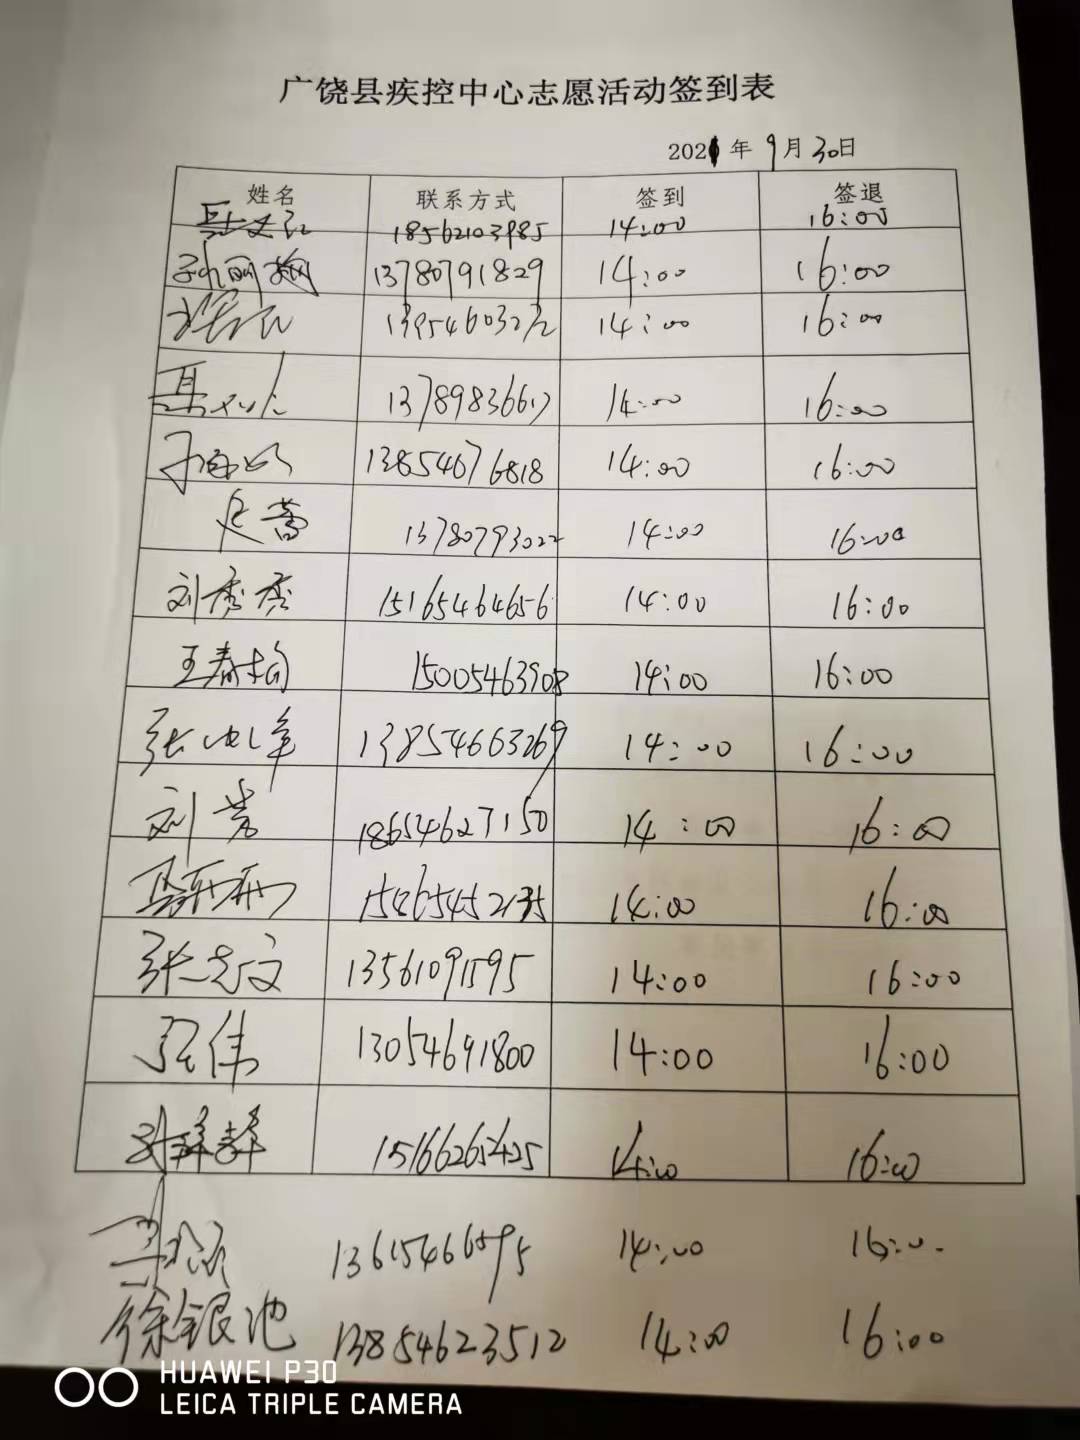 广饶县疾控中心志愿活动签到表
2021年 9月30日
姓名 联系方式 签到 签退
18562103985 14:00 16:00
孙丽娴 13780791829 14:00 16:00
14:00 16:00
13789836617 14:00 16:00
13854676818 14:00 16:00
延蕾 13780793022 14:00 16:00
刘秀秀 15165464656 14:00 16:00
王春梅 15005463908 14:00 16:00
13854663269 14:00 16:00
刘芳 18654627150 14:00 16:00
14:00 16:00
张志文 13561091595 14:00 16:00
张伟 13054691800 14:00 16:00
15166265425 14:00 16:00
13615466595 14:00 16:00
徐银池 13854623512 14:00 16:00
HUAWEI P30
LEICA TRIPLE CAMERA